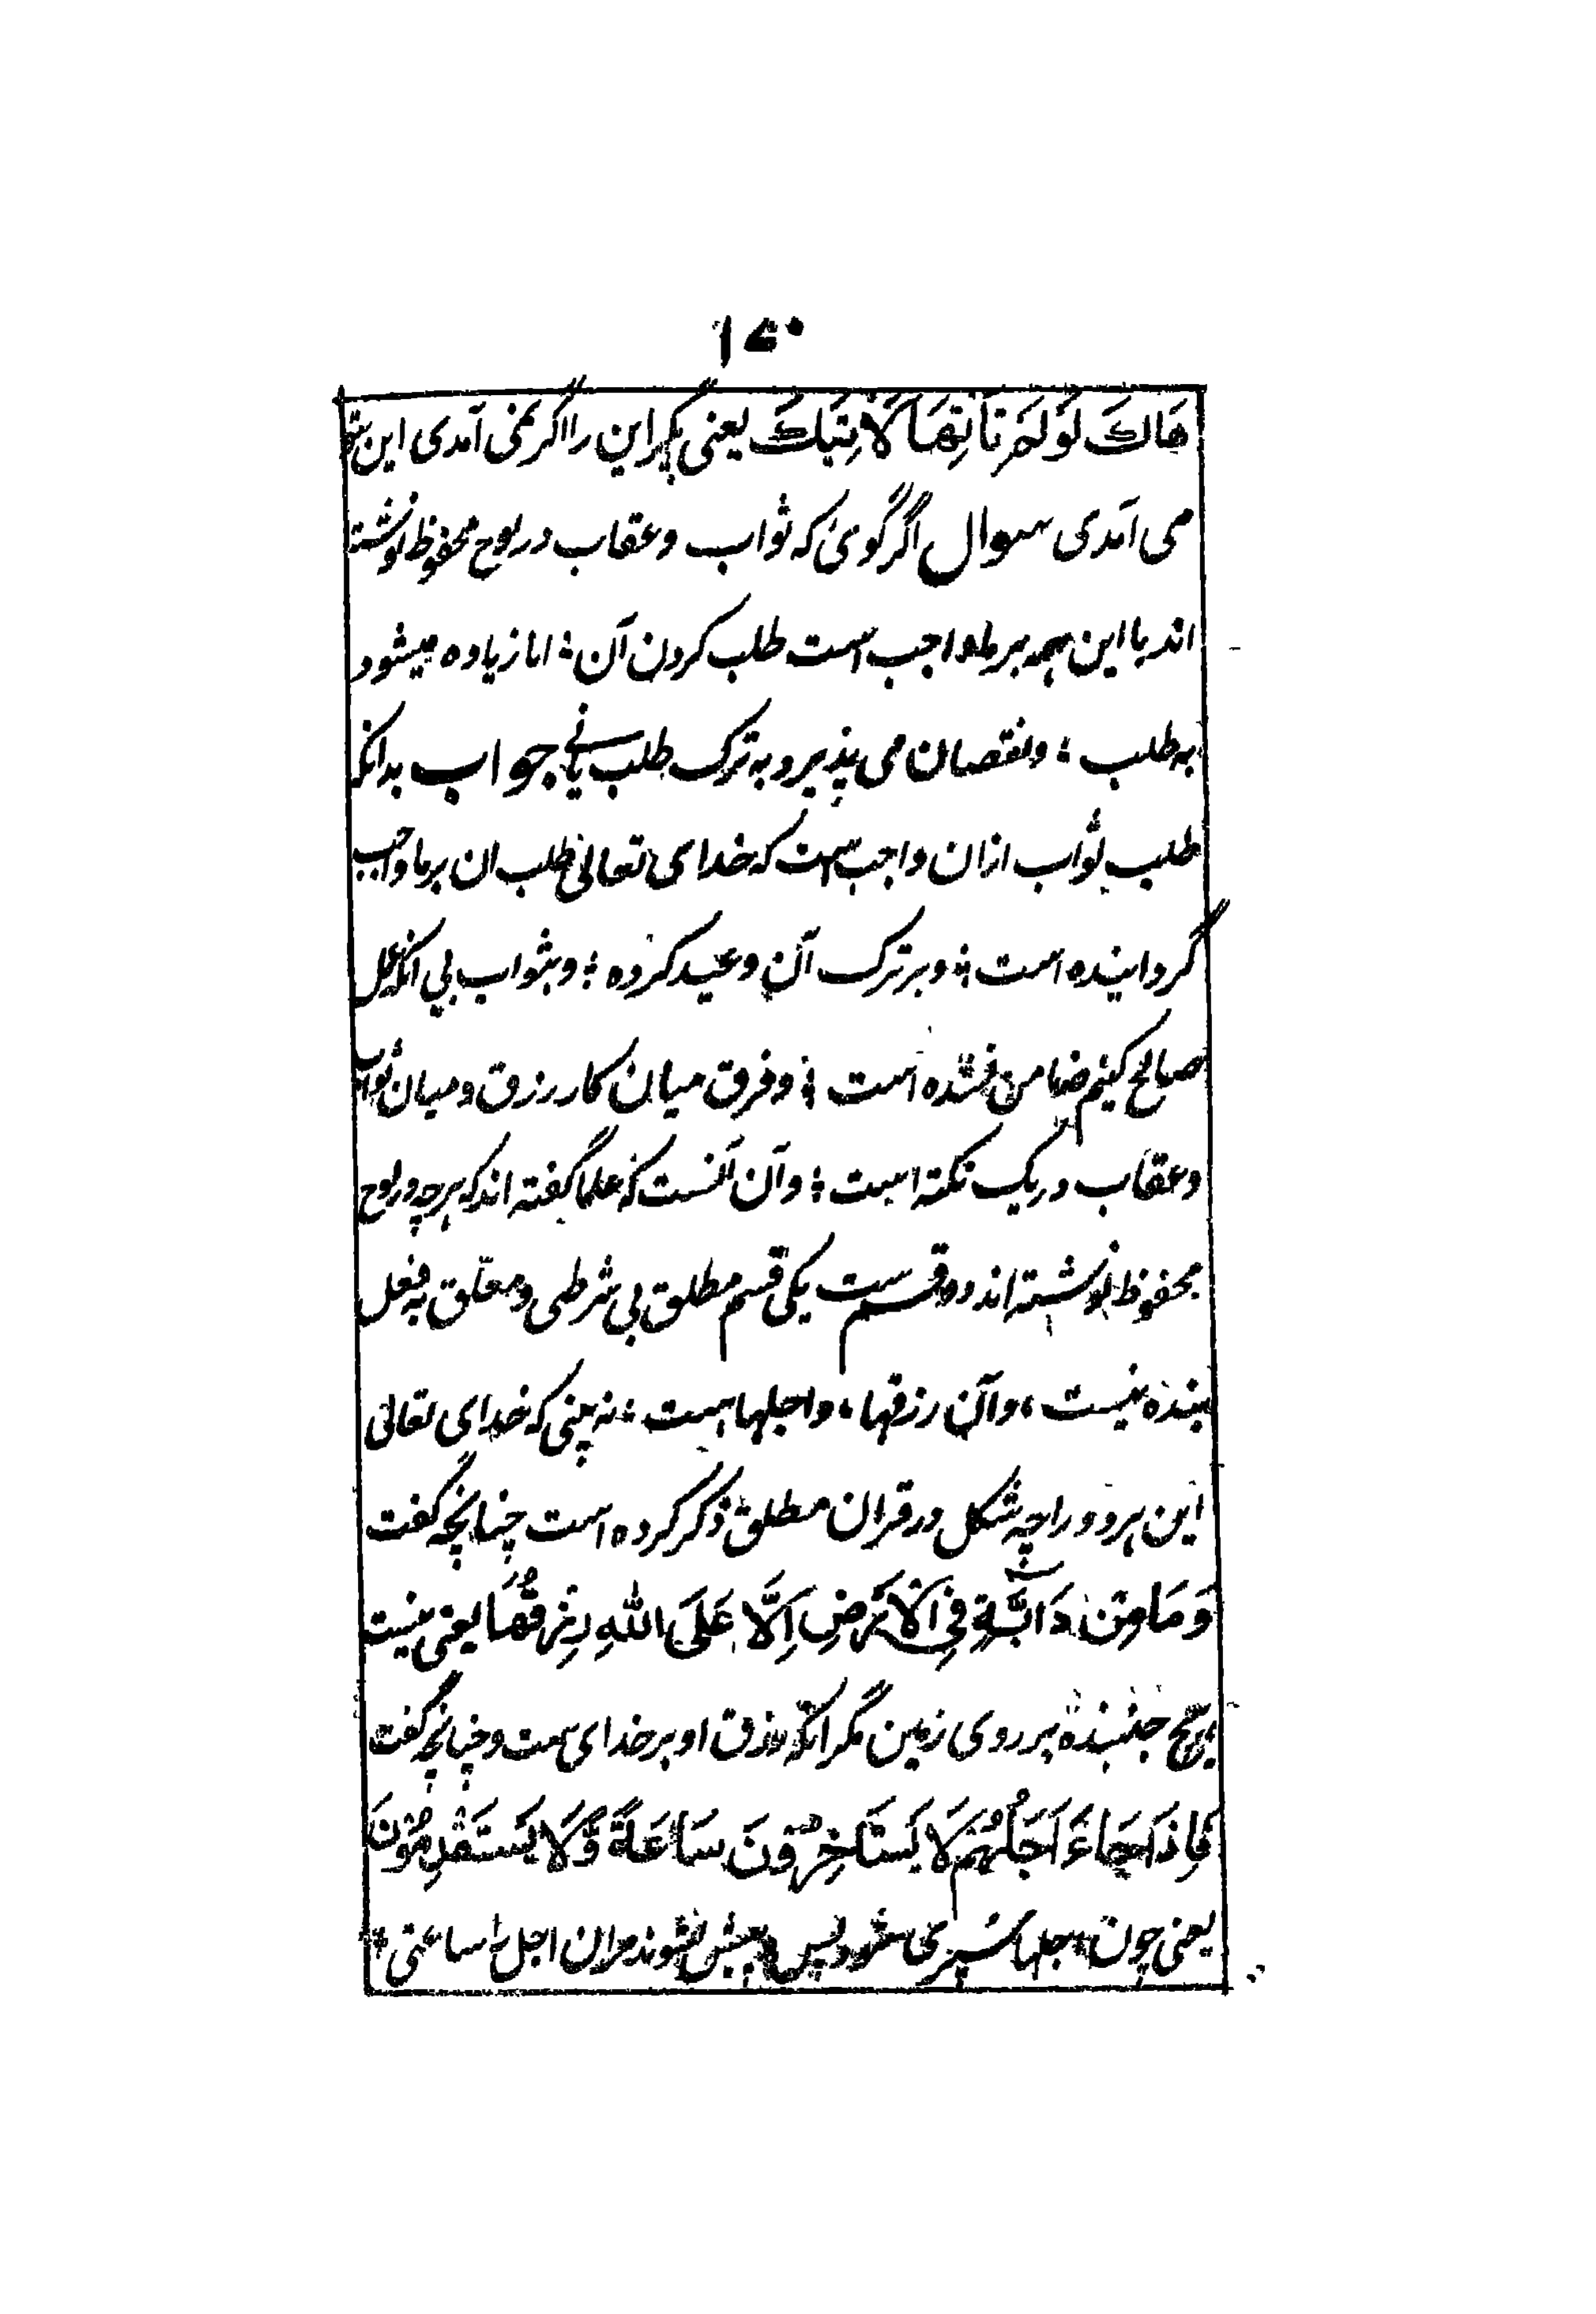 ۱۷۰
هَاكَ لَوْ لَمْ تَأْتِهَا لَأَتَتْكَ یعنی بگیر این را اگر نمی آمدی این بتو
می آمدی سوال اگر گوئی که ثواب وعقاب در لوح محفوظ نوشته
اند با این همه بر ما واجب است طلب کردن آن ؛ اما زیاده میشود
به طلب ؛ ونقصان می پذیرد به ترک طلب یا نے جواب بدانکه
طلب ثواب ازان واجب است که خدای تعالی طلب ان بر ما واجب
گردانیده است ؛ وبر ترک آن وعید کرده ؛ وبثواب بی انکه عمل
صالح کنیم ضامن نشده است ؛ وفرق میان کار رزق ومیان ثواب
وعقاب در یک نکته است ؛ وآن آنست که علما گفته اند که هرچه در لوح
محفوظ نوشته اند دو قسم ست یکی قسم مطلق بی شرطی ومعلّق به فعل
بنده نیست ، وآن رزقها ، واجلها است ؛ نه بینی که خدای تعالی
این هر دو را چه شکل در قران مطلق ذکر کرده است چنانچه گفت
وَمَا مِنْ دَآبَّةٍ فِي الْاَرْضِ اِلَّا عَلَى اللّٰهِ رِزْقُهَا یعنی نیست
هیچ جنبنده بر روی زمین مگر انکه رزق او بر خدای ست وچنانچه گفت
فَاِذَا جَاءَ اَجَلُهُمْ لَا يَسْتَأخِرُوْنَ سَاعَةً وَّلَا يَسْتَقْدِمُوْنَ
یعنی چون اجلها سپری شود پس وپیش نشوند مران اجل را ساعتی ؛